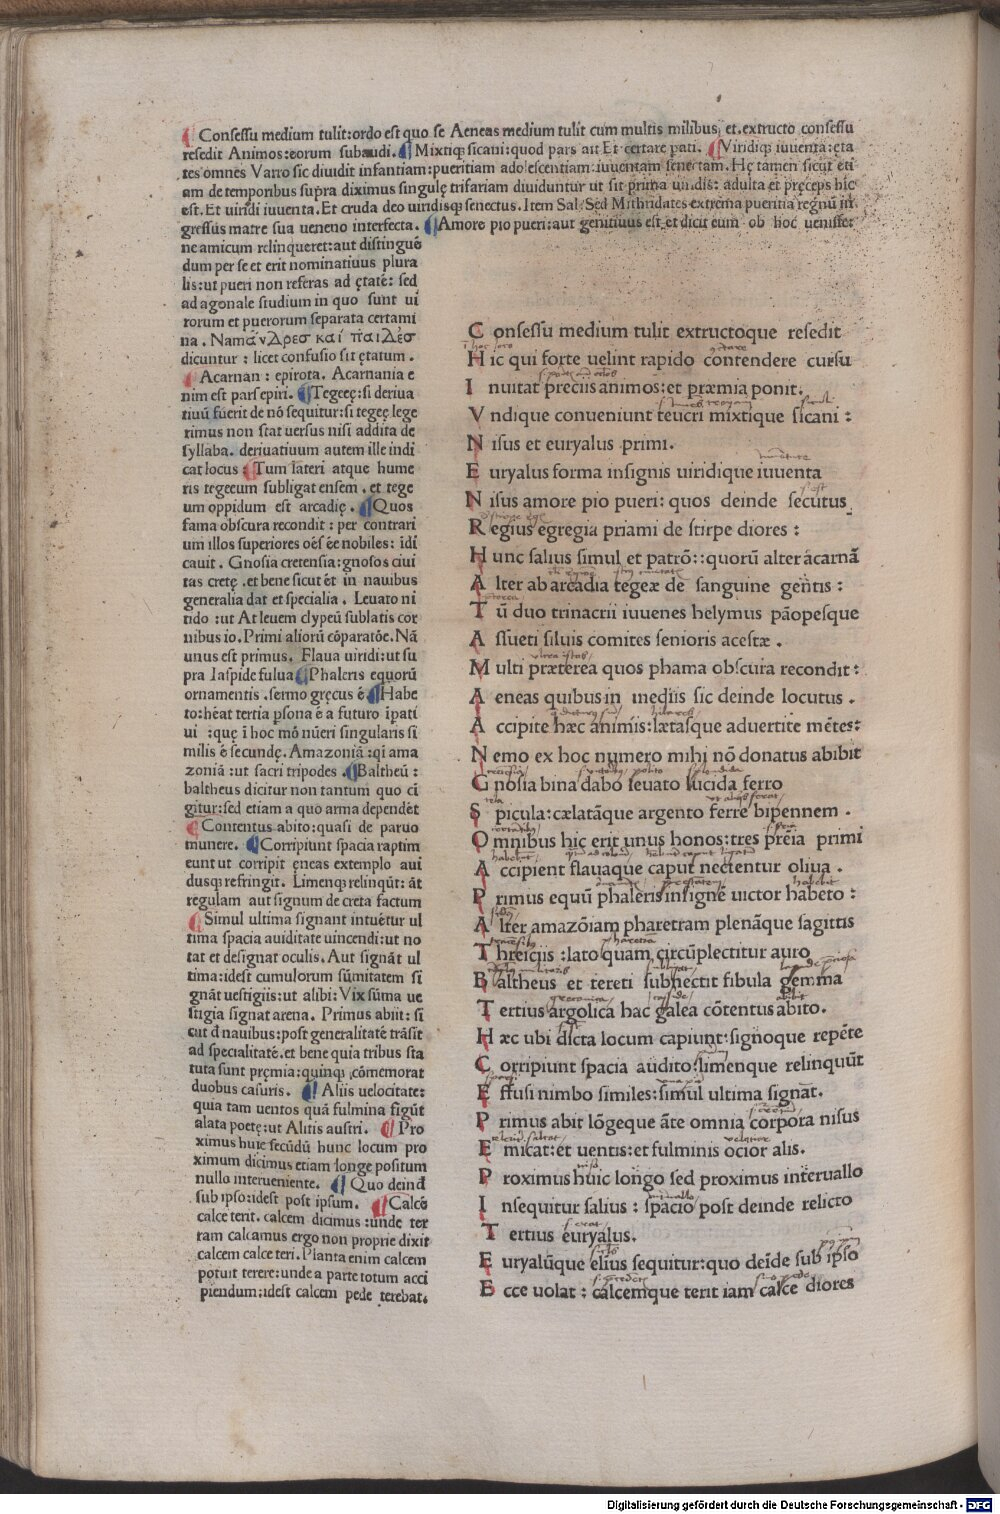 Consessu medium tulit:ordo est quo se Aeneas medium tulit cum multis milibus, et.extructo consessu
resedit Animos:eorum subaudi. Mixtiqꝫ sicani:quod pars ait Et certare pati. Viridiqꝫ iuuenta:ęta
tes omnes Varro sic diuidit infantiam:pueritiam adolescentiam:iuuentam senectam. Hę tamen sicut eti
am de temporibus supra diximus singulę trifariam diuiduntur ut sit prima uiridis: adulta et pręceps hic
est. Et uiridi iuuenta. Et cruda deo uiridisqꝫ senectus. Item Sal. Sed Mithridates extrema pueritia regnū in
gressus matre sua ueneno interfecta. Amore pio pueri:aut genitiuus est et dicit eum ob hoc uenisse:
ne amicum relinqueret:aut distinguē
dum per se et erit nominatiuus plura
lis:ut pueri non referas ad ętatē: sed
ad agonale studium in quo sunt ui
rorum et puerorum separata certami
na. Nam ἀνΔρεσ καί παιΔέσ
dicuntur : licet confusio sit ętatum.
Acarnan: epirota. Acarnania e
nim est pars epiri. Tegeeę:si deriua
tiuū fuerit de nō sequitur:si tegeę lege
rimus non stat uersus nisi addita de
syllaba. deriuatiuum autem ille indi
cat locus Tum lateri atque hume
ris tegeeum subligat ensem. et tege
um oppidum est arcadię. Quos
fama obscura recondit : per contrari
um illos superiores oēs eē nobiles: īdi
cauit. Gnosia cretensia:gnosos ciui
tas cretę. et bene sicut ēt in nauibus
generalia dat et specialia. Leuato ni
tido :ut At leuem clypeū sublatis cor
nibus io. Primi aliorū cōparatōe. Nā
unus est primus. Flaua uiridi:ut su
pra Iaspide fulua Phaleris equorū
ornamentis .sermo gręcus ē Habe
to:hēat tertia psona ē a futuro īpati
ui :quę ī hoc mō nūeri singularis si
milis ē secundę. Amazoniā :qī ama
zoniā :ut sacri tripodes. Baltheū :
baltheus dicitur non tantum quo ci
gitur:sed etiam a quo arma dependēt
Contentus abito:quasi de paruo
munere. Corripiunt spacia raptim
eunt ut corripit ęneas extemplo aui
dusqꝫ refringit. Limenqꝫ relinqūt: āt
regulam aut signum de creta factum
Simul ultima signant intuētur ul
tima spacia auiditate uincendi:ut no
tat et designat oculis. Aut signāt ul
tima:idest cumulorum sūmitatem si
gnāt uestigiis:ut alibi: Vix sūma ue
stigia signat arena. Primus abiit: si
cut đ nauibus:post generalitatē trāsit
ad specialitatē.et bene quia tribus sta
tuta sunt pręmia:quinqꝫ cōmemorat
duobus casuris. Aliis uelocitate:
quia tam uentos quā fulmina figūt
alata poetę:ut Alitis austri. Pro
ximus huic secūdū hunc locum pro
ximum dicimus etiam longe positum
nullo interueniente. Quo deinđ
sub ipso:idest post ipsum. Calcē
calce terit. calcem dicimus :unde ter
ram calcamus ergo non proprie dixit
calcem calce teri. Planta enim calcem
potuit terere:unde a parte totum acci
piendum:idest calcem pede terebat.
Consessu medium tulit extructoque resedit
Hic qui forte uelint rapido contendere cursu
Inuitat preciis animos:et præmia ponit.
Vndique conueniunt teucri mixtique sicani :
Nisus et euryalus primi.
Euryalus forma insignis uiridique iuuenta
Nisus amore pio pueri: quos deinde secutus
Regius egregia priami de stirpe diores :
Hunc salius simul et patrō::quorū alter acarnā
Alter ab arcadia tegeæ de sanguine gentis :
Tū duo trinacrii iuuenes helymus pāopesque
Assueti siluis comites senioris acestæ .
Multi præterea quos phama obscura recondit :
Aeneas quibus in mediis sic deinde locutus .
Accipite hæc animis:lætasque aduertite mētes:
Nemo ex hoc numero mihi nō donatus abibit
Gnosia bina dabo leuato lucida ferro
Spicula:cælatāque argento ferre bipennem .
Omnibus hic erit unus honos:tres prēia primi
Accipient flauaque caput nectentur oliua .
Primus equū phaleris insigne uictor habeto :
Alter amazōiam pharetram plenāque sagittis
Threiciis :lato quam circūplectitur auro
Baltheus et tereti subnectit fibula gemma
Tertius argolica hac galea cōtentus abito.
Hæc ubi dicta locum capiunt:signoque repēte
Corripiunt spacia audito:limenque relinquūt
Effusi nimbo similes:simul ultima signāt.
Primus abit lōgeque āte omnia corpora nisus
Emicat:et uentis:et fulminis ocior alis.
Proximus huic longo sed proximus interuallo
Insequitur salius : spacio post deinde relicto
Tertius euryalus.
Euryalūque elius sequitur:quo deīde sub ipso
Ecce uolat : calcemque terit iam calce diores
Digitalisierung gefördert durch die Deutsche Forschungsgemeinschaft - DFG